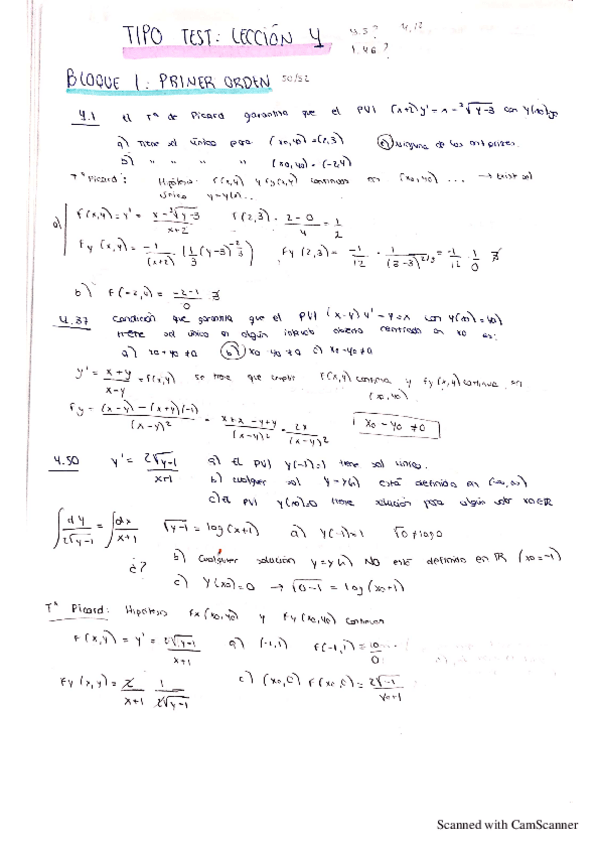 TIPO TEST: LECCIÓN 4 4.5? 4.17
1.46?
BLOQUE 1: PRIMER ORDEN 50/52
4.1 El Tª de Picard garantiza que el PVI (x+2)y' = x - ³√y-3 con y(x0)=y0
a) Tiene sol única para (x0,y0)=(2,3) c) Ninguna de las anteriores.
b) " " " " (x0,y0)=(-2,4)
Tª Picard: Hipótesis: f(x,y) y fy(x,y) continuas en (x0,y0) ... → exist sol
única y=y(x)..
a) f(x,y)=y' = x-³√y-3 / x+2 f(2,3) = 2-0 / 4 = 1/2
fy(x,y) = -1/(x+2) · (1/3 (y-3)^-2/3) fy(2,3) = -1/12 · 1/(3-3)^2/3 = -1/12 · 1/0 ∄
b) f(-2,4) = -2-1 / 0 ∄
4.37 Condición que garantiza que el PVI (x-y)y' - y = x con y(x0)=y0
tiene sol única en algún intervalo abierto centrado en x0 es:
a) x0+y0≠0 b) x0 y0 ≠0 c) x0-y0≠0
y' = x+y / x-y = f(x,y) se tiene que cumplir f(x,y) continua y fy(x,y) continua en
(x0,y0).
fy = (x-y)-(x+y)(-1) / (x-y)² = x+x-y+y / (x-y)² = 2x / (x-y)² x0-y0≠0
4.50 y' = 2√y-1 / x+1 a) El PVI y(-1)=1 tiene sol única.
b) cualquier sol y=y(x) está definida en (-∞,∞)
c) El PVI y(x0)=0 tiene solución para algún valor x0∈R
∫ dy / 2√y-1 = ∫ dx / x+1 √y-1 = log(x+1) a) y(-1)=1 √0≠log0
¿? b) Cualquier solución y=y(x) NO está definida en R (x0=-1)
c) y(x0)=0 → √0-1 = log(x0+1)
Tª Picard: Hipótesis fx(x0,y0) y fy(x0,y0) continuas
f(x,y) = y' = 2√y-1 / x+1 a) (-1,1) f(-1,1) = 10 / 0
fy(x,y) = 2 / x+1 · 1 / 2√y-1 c) (x0,0) f(x0,0) = 2√-1 / x0+1
Scanned with CamScanner